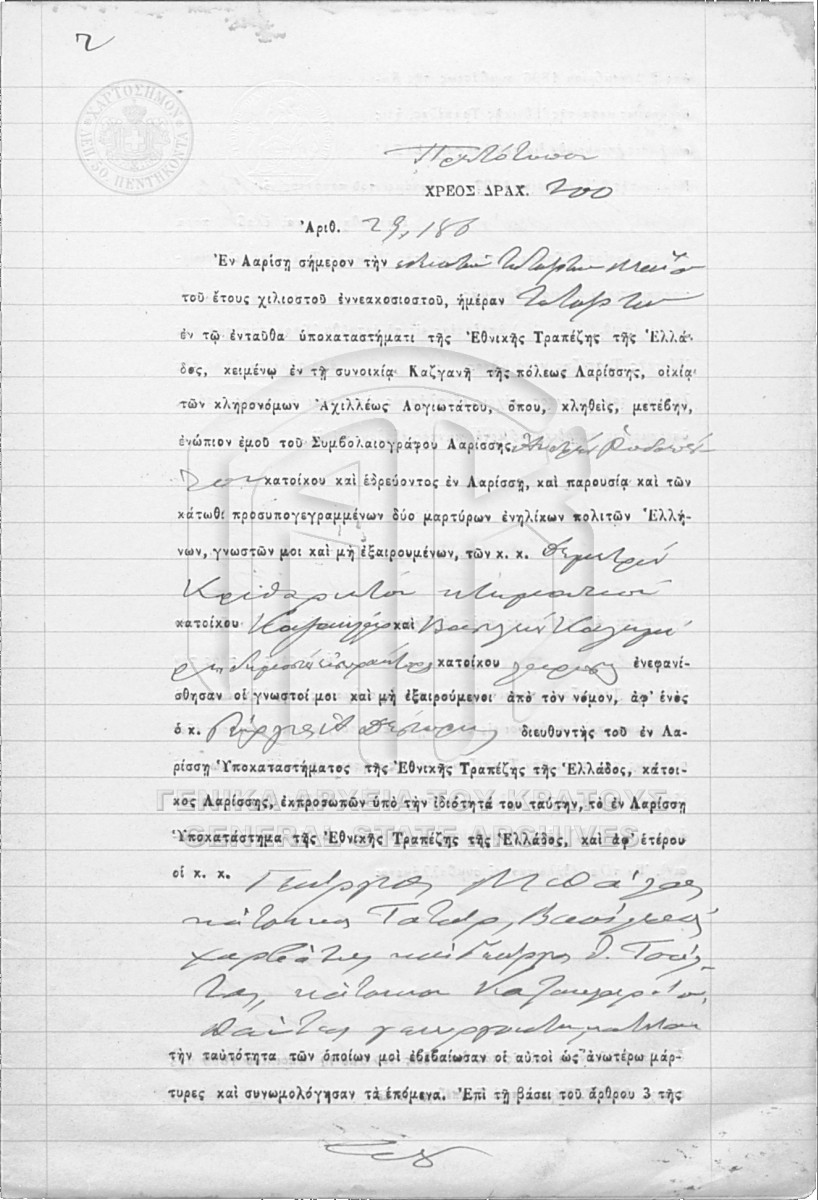 2
ΧΑΡΤΟΣΗΜΟΝ ΛΕΠ. 50 ΠΕΝΤΗΚΟΝΤΑ
Πρωτότυπον
ΧΡΕΟΣ ΔΡΑΧ. 200
Ἀριθ. 29,186
Ἐν Λαρίσῃ σήμερον τὴν εἰκοστὴν τετάρτην Μαΐου
τοῦ ἔτους χιλιοστοῦ ἐννεακοσιοστοῦ, ἡμέραν Τετάρτην
ἐν τῷ ἐνταῦθα ὑποκαταστήματι τῆς Ἐθνικῆς Τραπέζης τῆς Ἑλλά-
δος, κειμένῳ ἐν τῇ συνοικίᾳ Καζγανῆ τῆς πόλεως Λαρίσσης, οἰκίᾳ
τῶν κληρονόμων Ἀχιλλέως Λογιωτάτου, ὅπου, κληθεὶς, μετέβην,
ἐνώπιον ἐμοῦ τοῦ Συμβολαιογράφου Λαρίσσης
κατοίκου καὶ ἑδρεύοντος ἐν Λαρίσσῃ, καὶ παρουσίᾳ καὶ τῶν
κάτωθι προσυπογεγραμμένων δύο μαρτύρων ἐνηλίκων πολιτῶν Ἑλλή-
νων, γνωστῶν μοι καὶ μὴ ἐξαιρουμένων, τῶν κ. κ. Δημητρίου
κτηματίου
κατοίκου καὶ Βασιλείου
κατοίκου Λαρίσσης ἐνεφανί-
σθησαν οἱ γνωστοί μοι καὶ μὴ ἐξαιρούμενοι ἀπὸ τὸν νόμον, ἀφ' ἑνὸς
ὁ κ. διευθυντὴς τοῦ ἐν Λα-
ρίσσῃ Ὑποκαταστήματος τῆς Ἐθνικῆς Τραπέζης τῆς Ἑλλάδος, κάτοι-
κος Λαρίσσης, ἐκπροσωπῶν ὑπὸ τὴν ἰδιότητά του ταύτην, τὸ ἐν Λαρίσσῃ
ΓΕΝΙΚΑ ΑΡΧΕΙΑ ΤΟΥ ΚΡΑΤΟΥΣ
Ὑποκατάστημα τῆς Ἐθνικῆς Τραπέζης τῆς Ἑλλάδος, καὶ ἀφ' ἑτέρου
GENERAL STATE ARCHIVES
οἱ κ. κ. Γεώργιος
κάτοικος Τατάρ, Βασίλειος
καὶ Γεώργιος Θ.
κάτοικοι
πάντες
τὴν ταὐτότητα τῶν ὁποίων μοὶ ἐβεβαίωσαν οἱ αὐτοὶ ὡς ἀνωτέρω μάρ-
τυρες καὶ συνωμολόγησαν τὰ ἑπόμενα. Ἐπὶ τῇ βάσει τοῦ ἄρθρου 3 τῆς